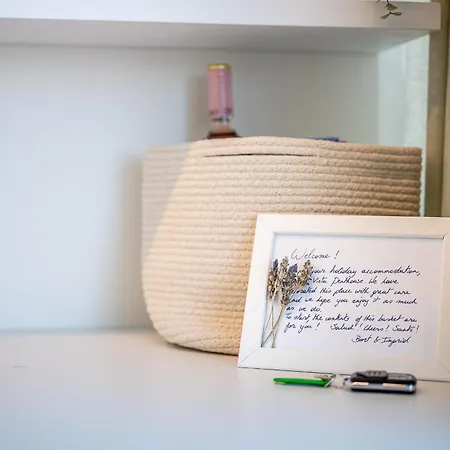 Welcome!
your holiday accommodation,
Vista Penthouse. We have
this place with great care
and we hope you enjoy it as much
as we do.
To start the contents of this basket are
for you! Salud! Cheers! Santé!
& Ingrid